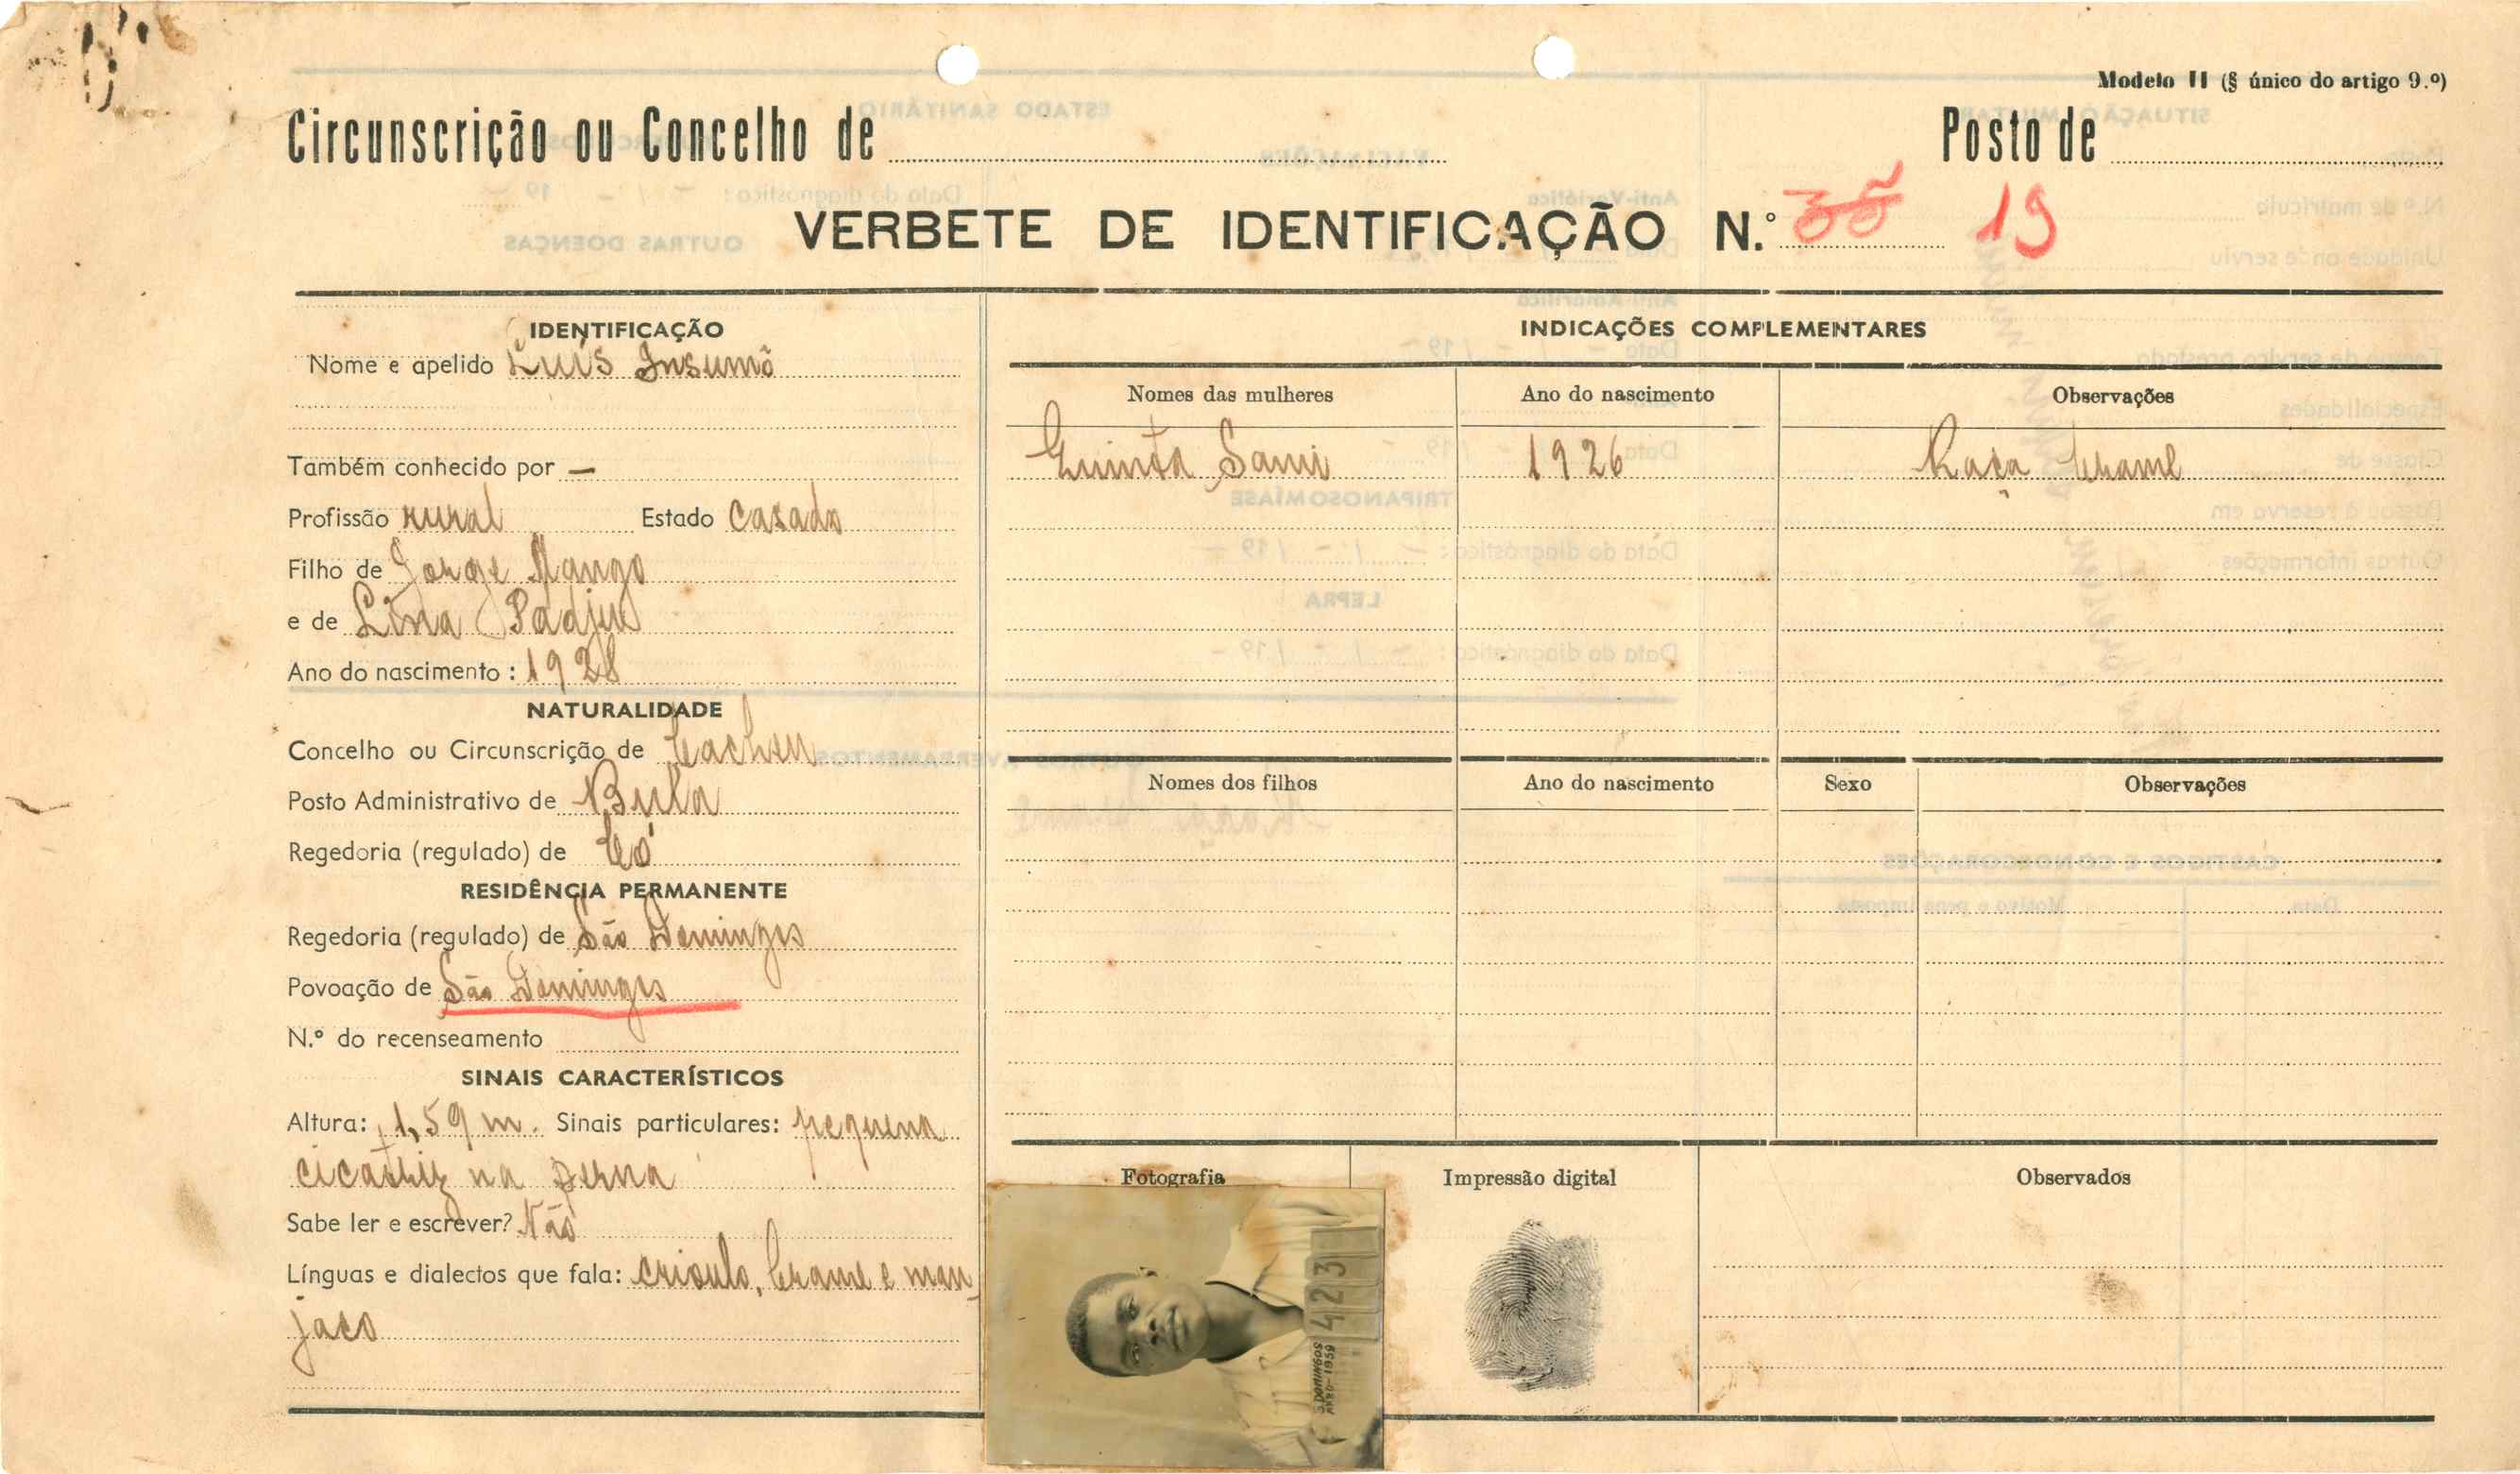 Modelo II (§ único do artigo 9.º)
Circunscrição ou Concelho de
Posto de
VERBETE DE IDENTIFICAÇÃO N.º 35 19
IDENTIFICAÇÃO
Nome e apelido Luís Insumô
Também conhecido por —
Profissão rural Estado casado
Filho de Jorge Nango
e de Lina Padju
Ano do nascimento: 1928
NATURALIDADE
Concelho ou Circunscrição de Cacheu
Posto Administrativo de Bula
Regedoria (regulado) de Có
RESIDÊNCIA PERMANENTE
Regedoria (regulado) de São Domingos
Povoação de São Domingos
N.º do recenseamento
SINAIS CARACTERÍSTICOS
Altura: 1,59 m. Sinais particulares: pequena
cicatriz na perna
Sabe ler e escrever? Não
Línguas e dialectos que fala: crioulo, brame e man
jaco
INDICAÇÕES COMPLEMENTARES
Nomes das mulheres Ano do nascimento Observações
Quinta Sami 1926 Raça brame
Nomes dos filhos Ano do nascimento Sexo Observações
Fotografia Impressão digital Observados
S. DOMINGOS
ANO-1959
423